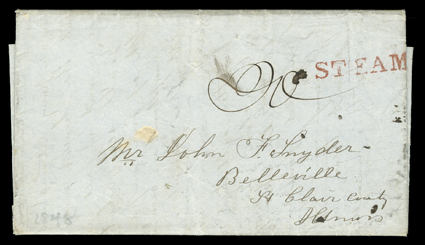 STEAM
10
Mr John F. Snyder
Belleville
St Clair Conty
Illinois
1848